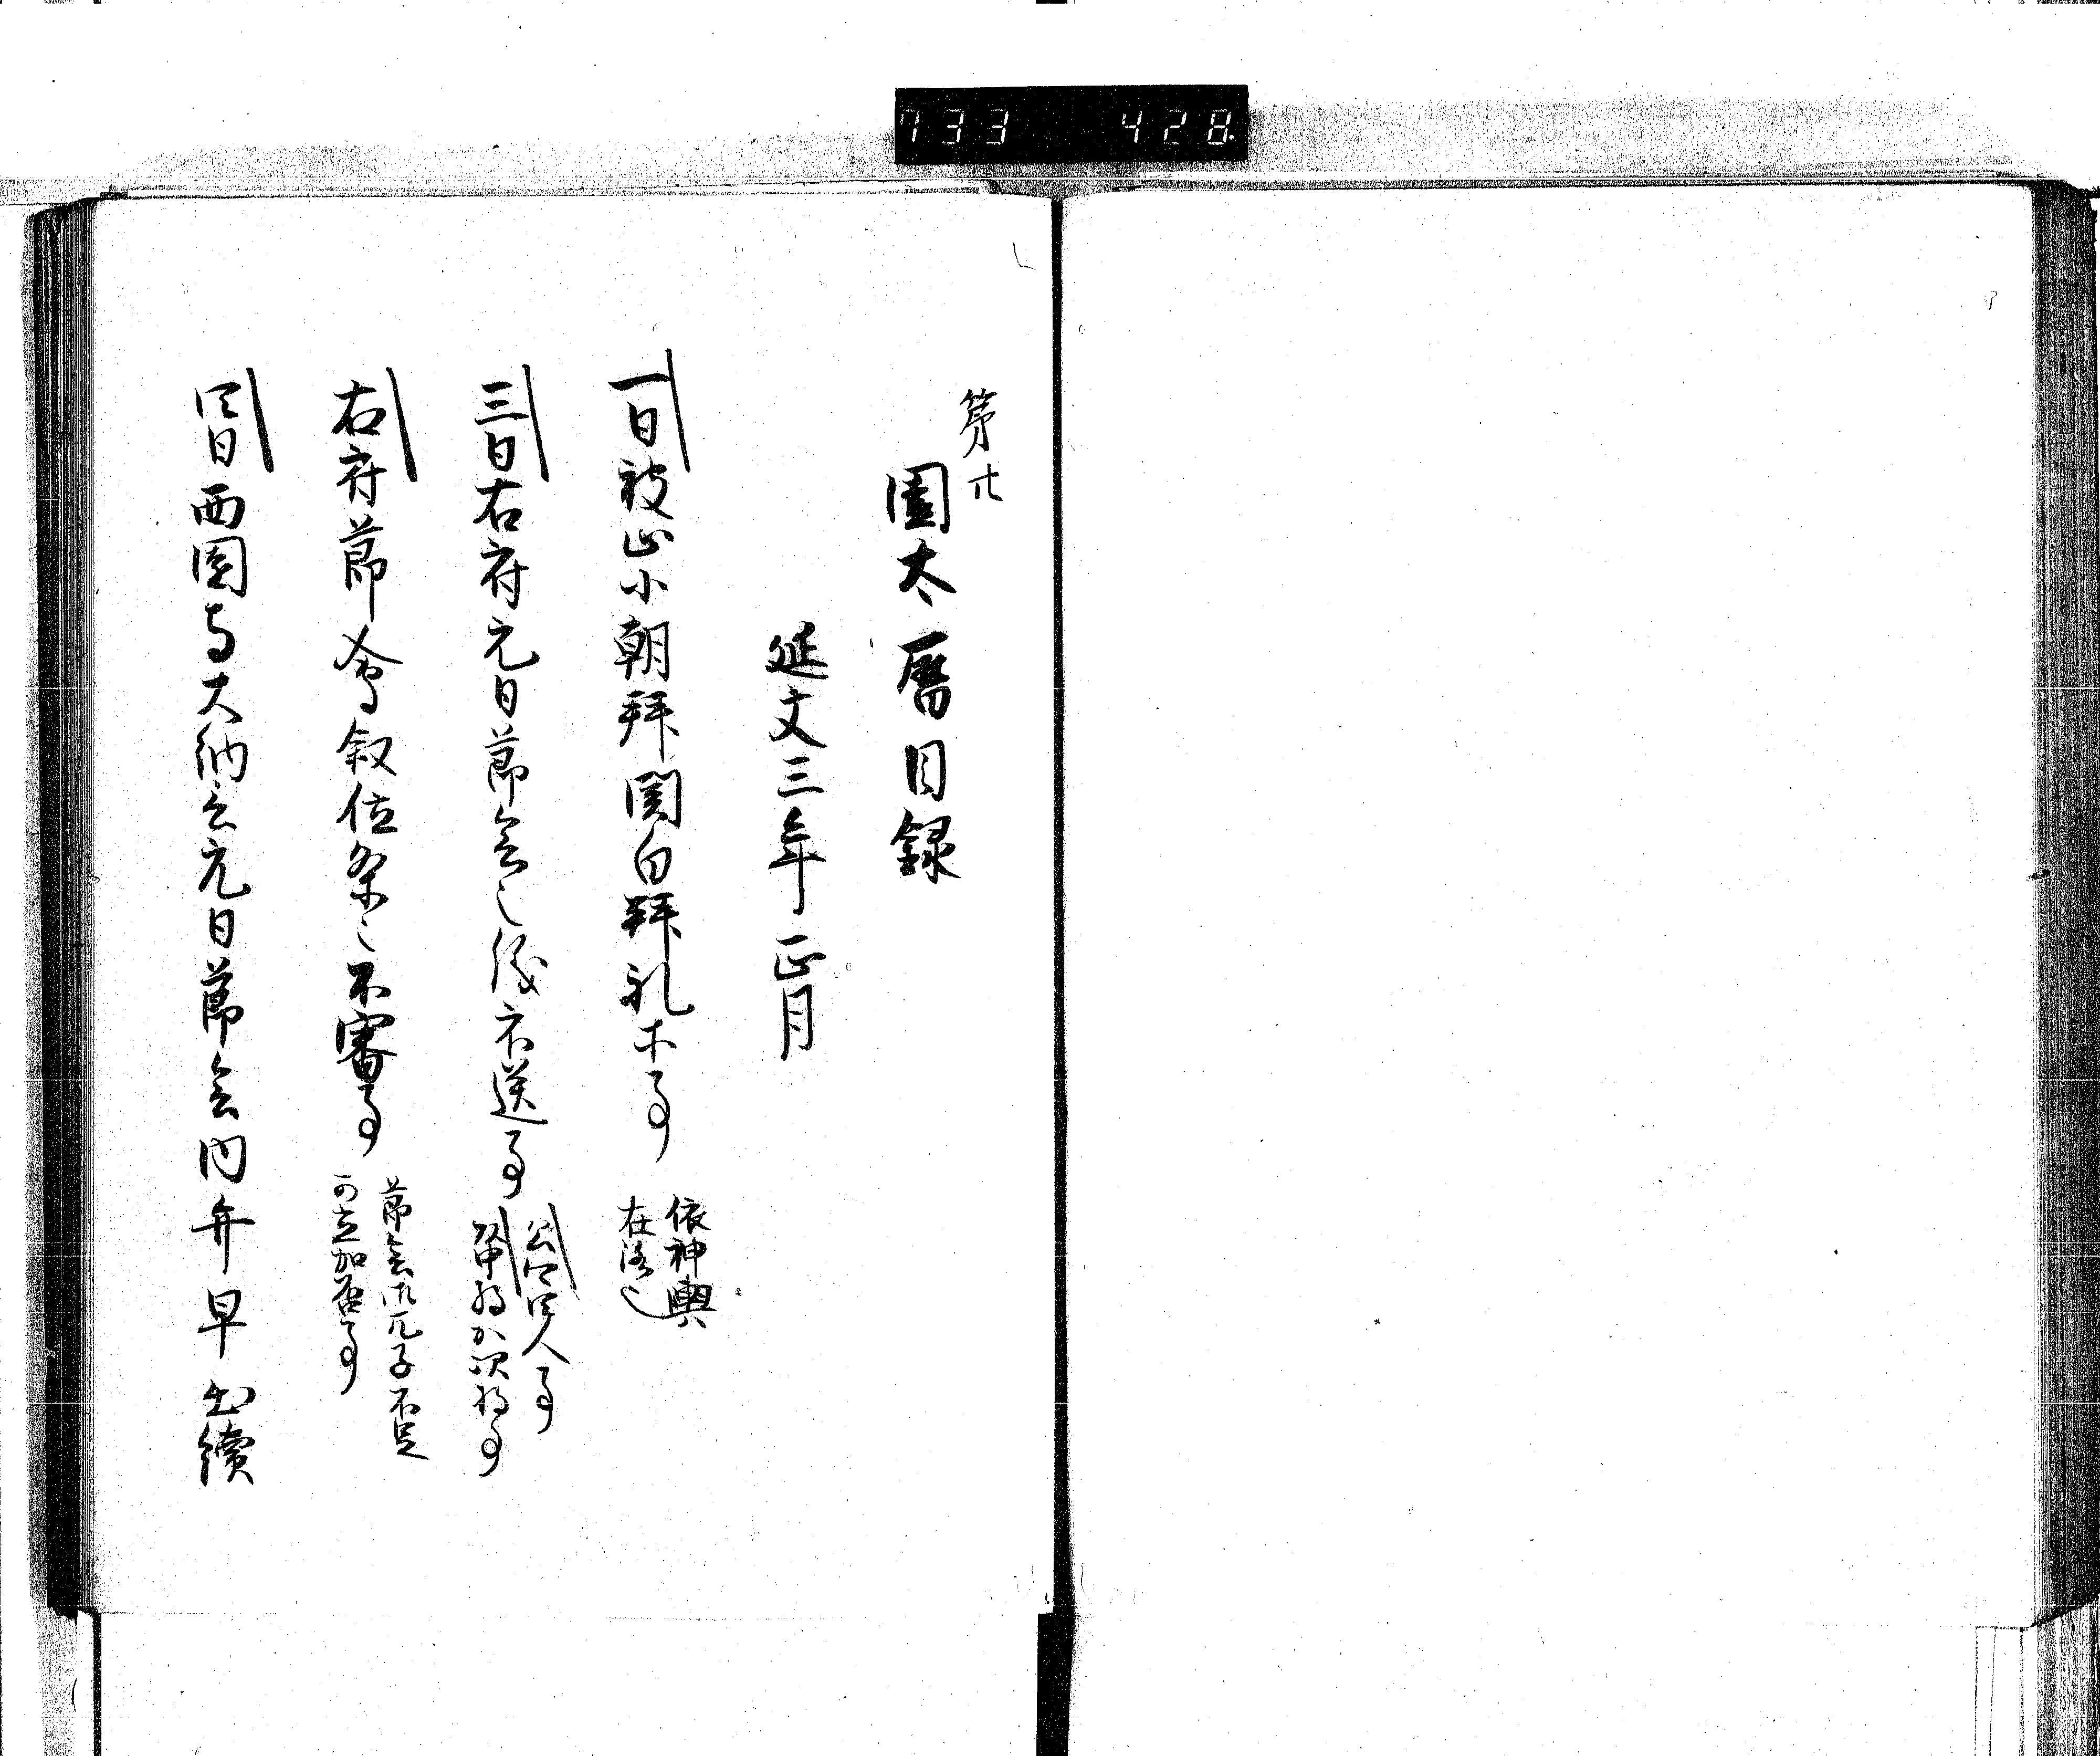 733 428
第廿
園太暦目録
延文三年正月
一日被止小朝拜関白拜礼木事
依神輿
在洛也
三日右府元日節会之後示送事
公卿四人事
将か次将事
右府節會叙位条々不審事
節会御兀子不足
可立加否事
四日西園寺大納言元日節会内弁早出續